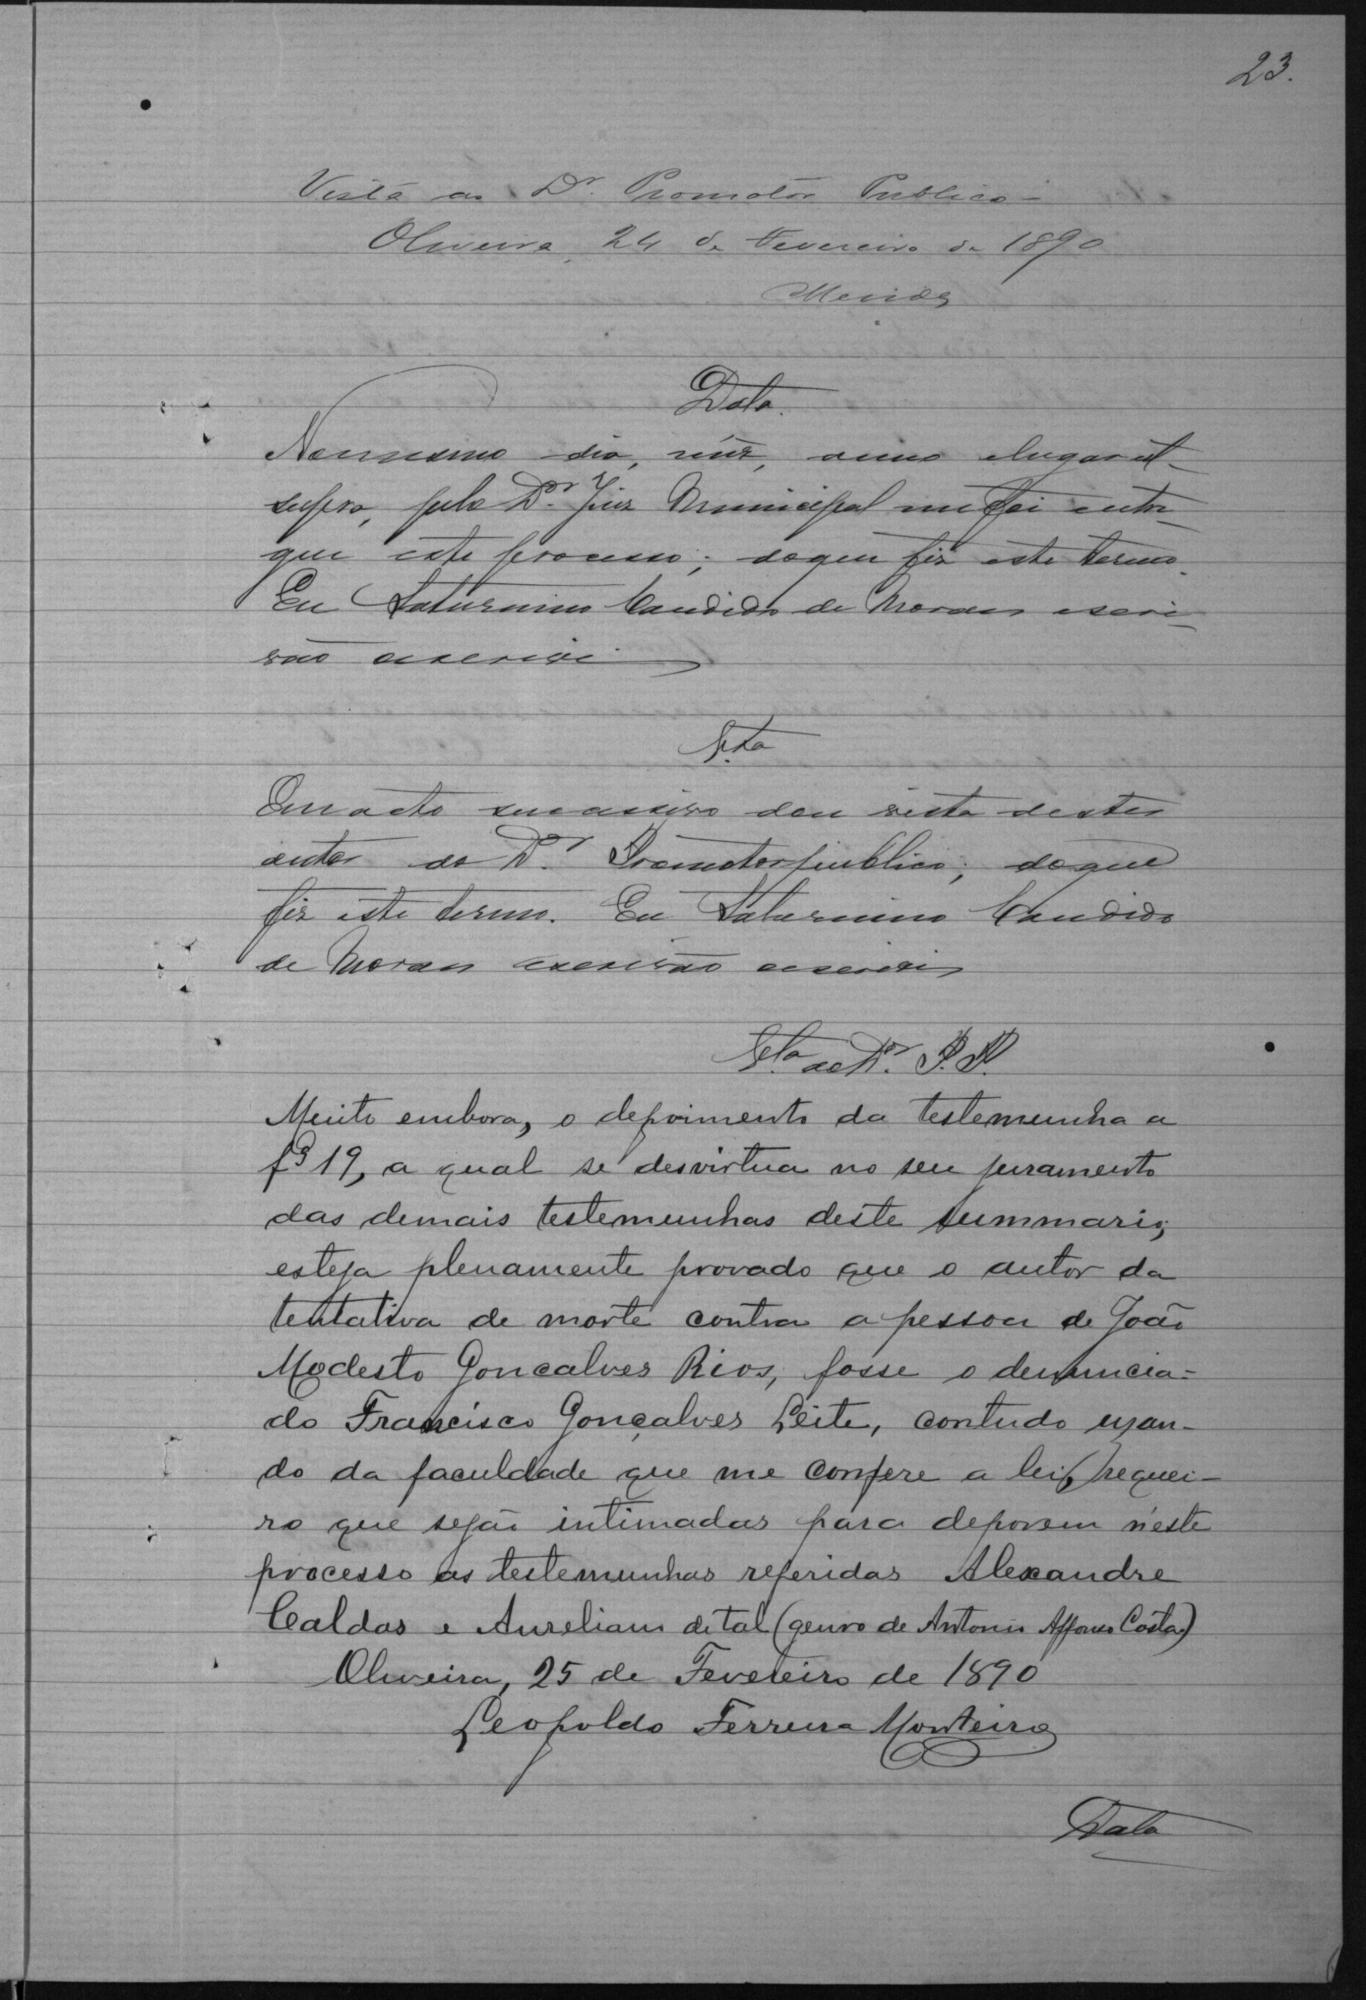 23.
Vista ao Dr. Promotor Publico
Oliveira, 24 de Fevereiro de 1890
Data.
No mesmo dia, mez, anno e lugar ut
supra, pelo Dr. Juiz Municipal me foi entre
gue este processo; do que fiz este termo.
Eu Saturnino Candido de Moraes escri-
vão escrevi
Vta
Em acto successivo dou vista destes
autos ao Dr. Promotor publico; do que
fiz este termo. Eu Saturnino Candido
de Moraes escrivão escrevi
Vta ao Dr. P. P.
Muito embora, o depoimento da testemunha a
fs 19, a qual se desvirtua no seu juramento
das demais testemunhas deste summario,
esteja plenamente provado que o autor da
tentativa de morte contra a pessoa de João
Modesto Goncalves Rios, fosse o denuncia=
do Francisco Gonçalves Leite, contudo uzan-
do da faculdade que me confere a lei, requei-
ro que sejão intimadas para deporem n'este
processo as testemunhas referidas Alexandre
Caldas e Aureliano de tal (genro de Antonio Affonso Costa)
Oliveira, 25 de Fevereiro de 1890
Leopoldo Ferreira Monteiro
Data